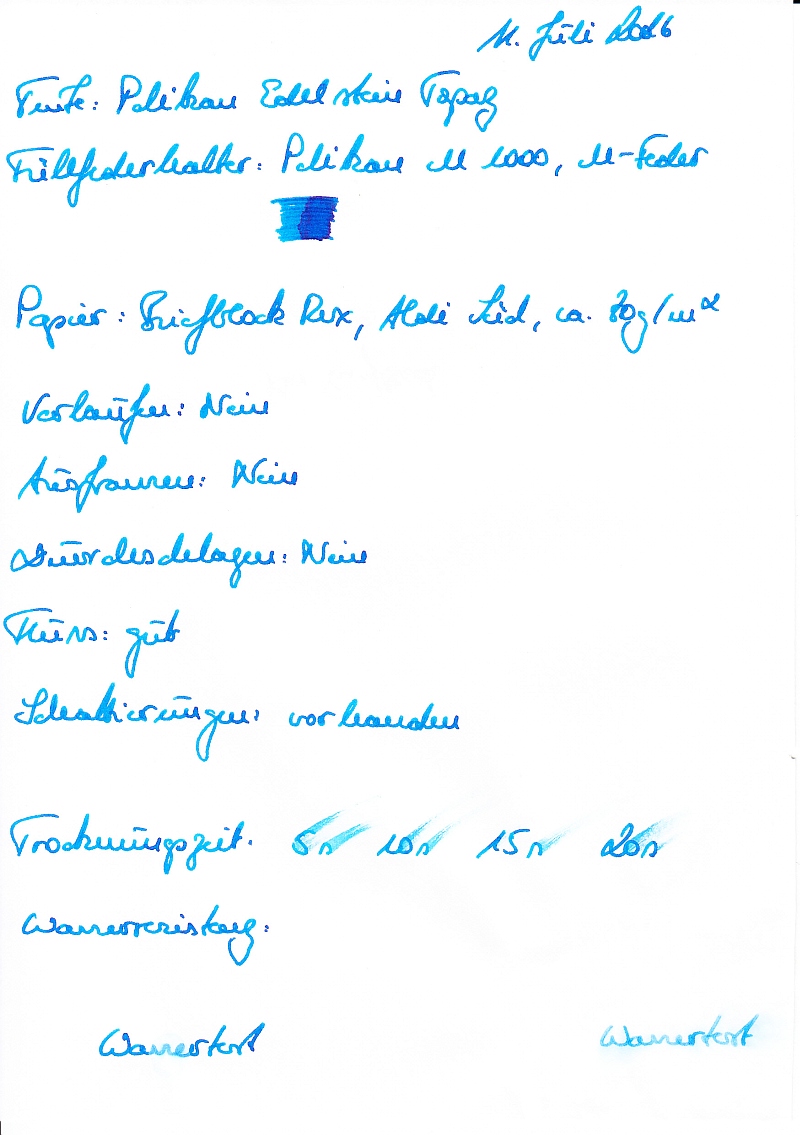 11. Juli 2026
Tinte: Pelikan Edelstein Topaz
Füllfederhalter: Pelikan M 1000, M-Feder
Papier: Briefblock Rex, Aldi Süd, ca. 80g/m²
Verlaufen: Nein
Ausfransen: Nein
Durchschlagen: Nein
Fluss: gut
Schattierungen: vorhanden
Trocknungszeit: 5s 10s 15s 20s
Wasserresistenz:
Wassertest Wassertest